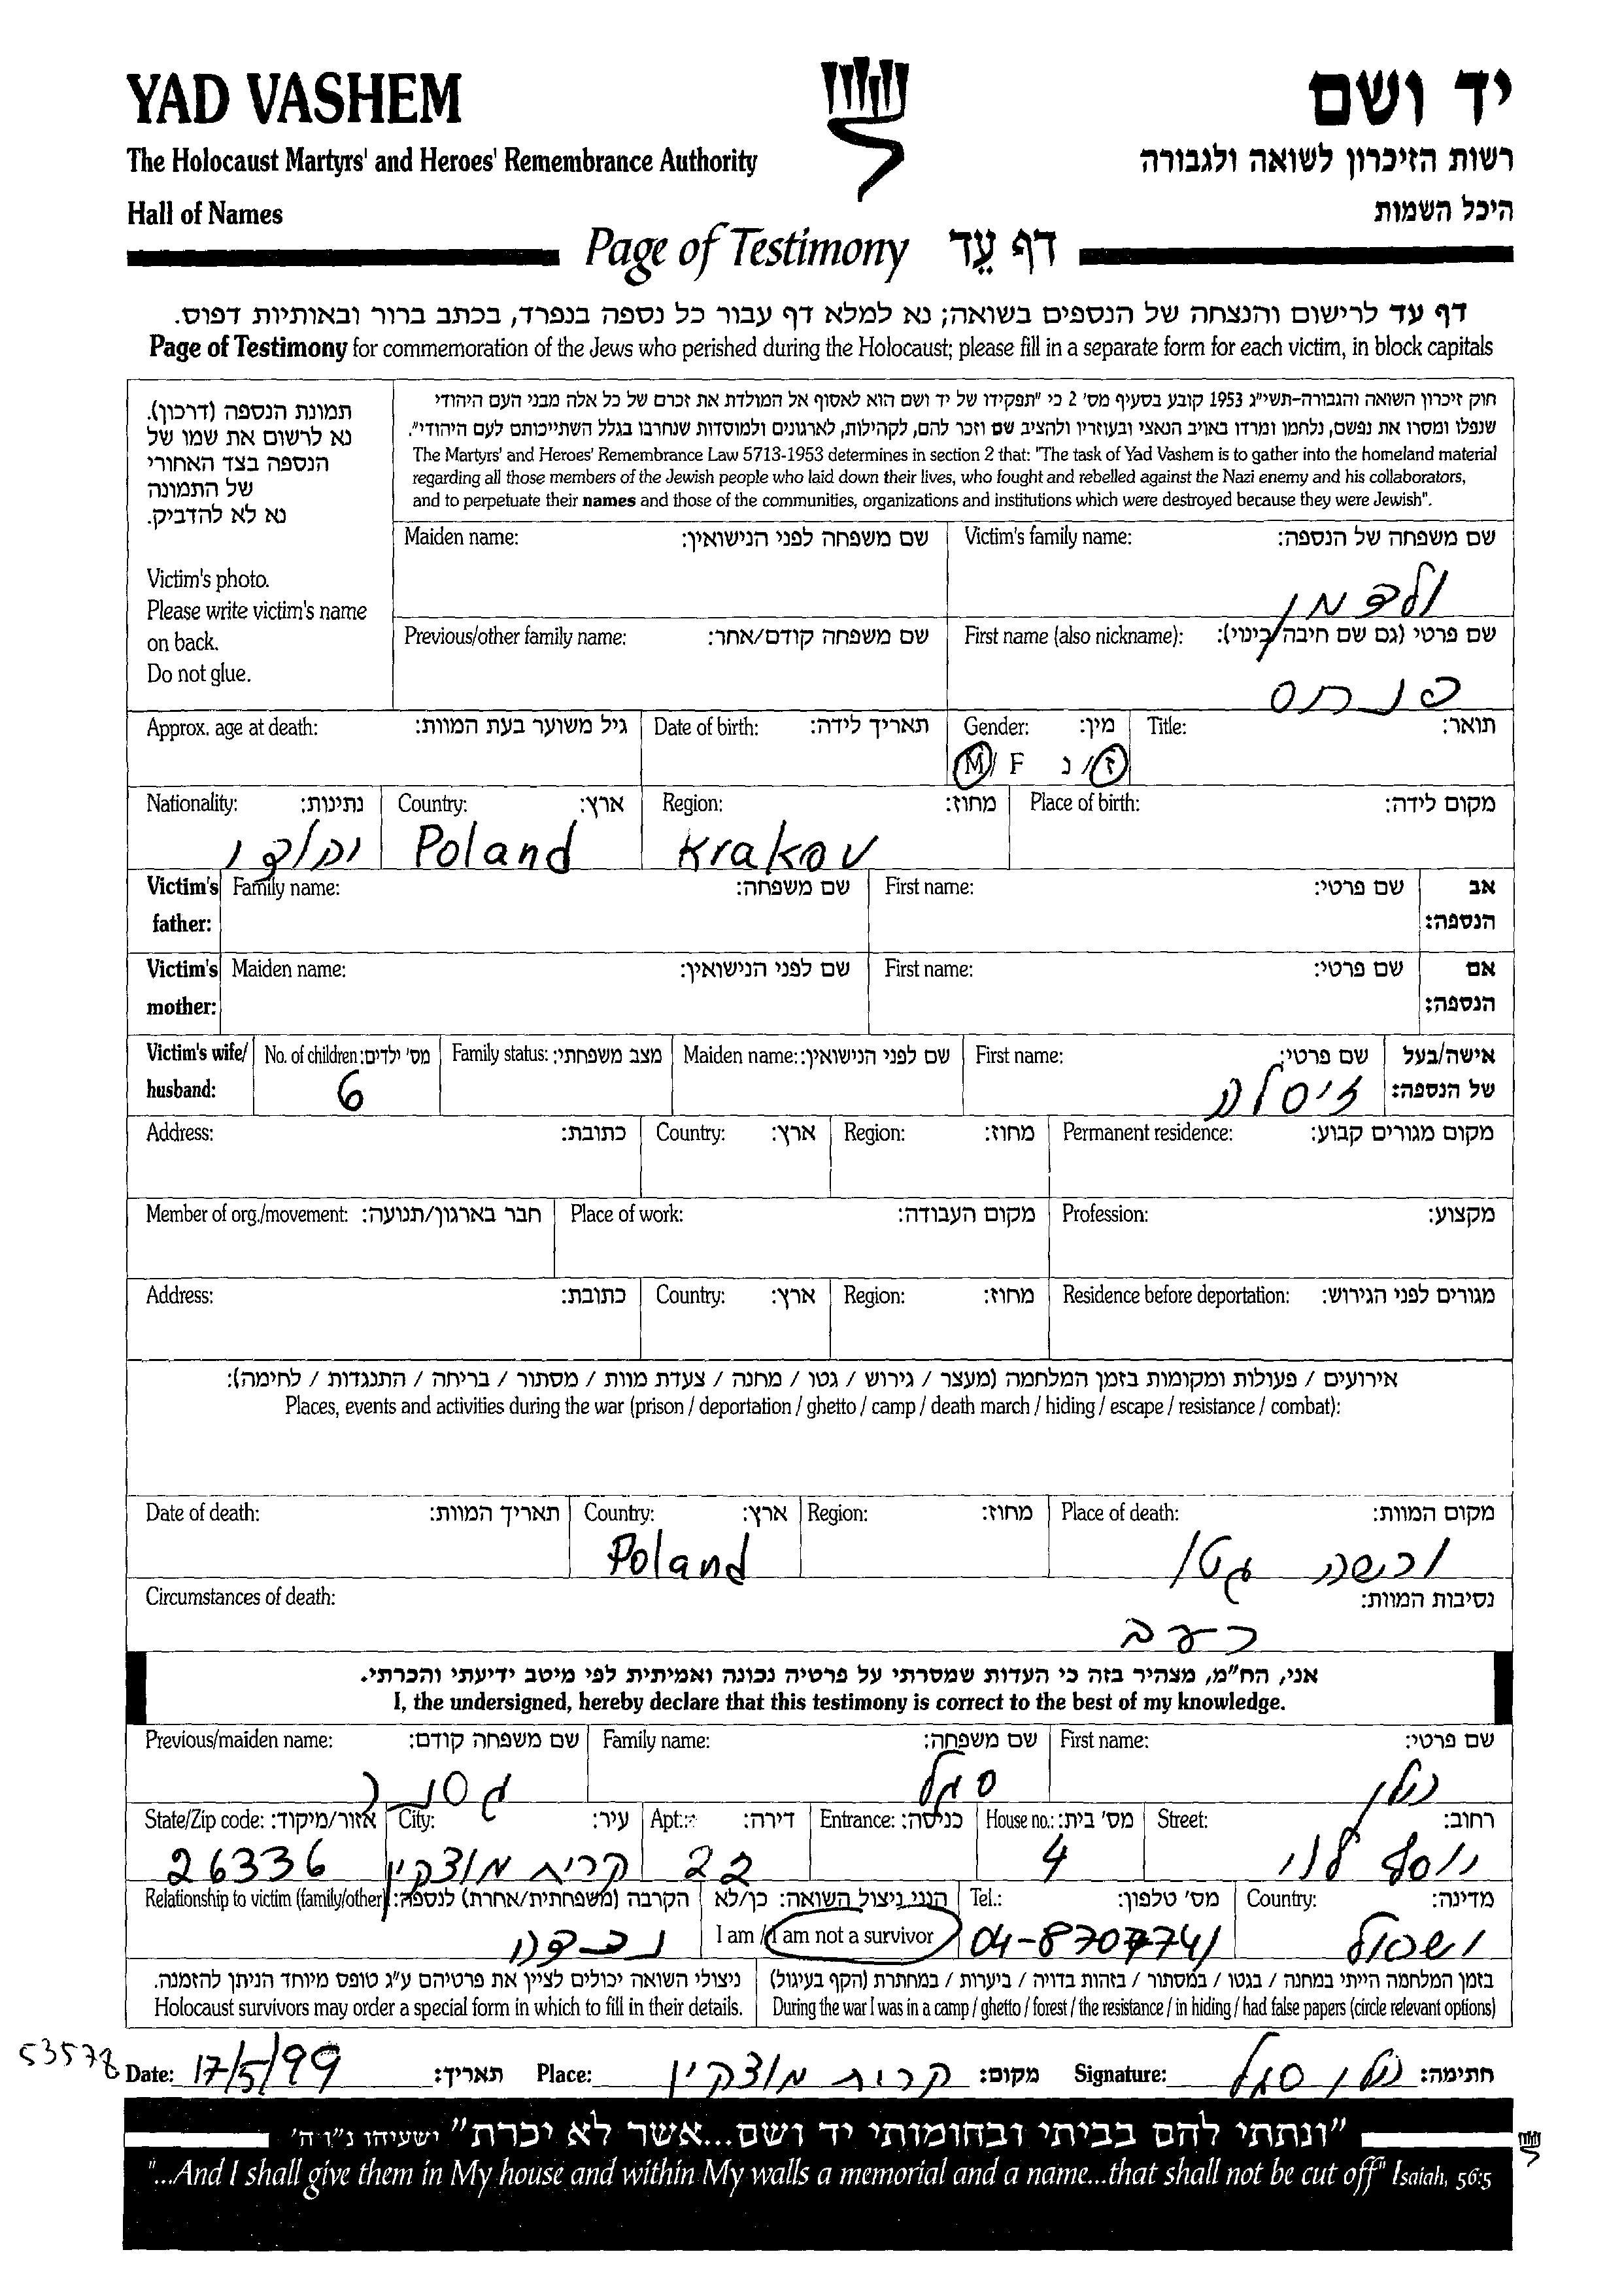 YAD VASHEM
יד ושם
The Holocaust Martyrs' and Heroes' Remembrance Authority
רשות הזיכרון לשואה ולגבורה
Hall of Names
היכל השמות
Page of Testimony דף עֵד
דף עד לרישום והנצחה של הנספים בשואה; נא למלא דף עבור כל נספה בנפרד, בכתב ברור ובאותיות דפוס.
Page of Testimony for commemoration of the Jews who perished during the Holocaust; please fill in a separate form for each victim, in block capitals
תמונת הנספה (דרכון).
נא לרשום את שמו של
הנספה בצד האחורי
של התמונה
נא לא להדביק.
Victim's photo.
Please write victim's name
on back.
Do not glue.
חוק זיכרון השואה והגבורה-תשי"ג 1953 קובע בסעיף מס' 2 כי "תפקידו של יד ושם הוא לאסוף אל המולדת את זכרם של כל אלה מבני העם היהודי
שנפלו ומסרו את נפשם, נלחמו ומרדו באויב הנאצי ובעוזריו ולהציב שם וזכר להם, לקהילות, לארגונים ולמוסדות שנחרבו בגלל השתייכותם לעם היהודי".
The Martyrs' and Heroes' Remembrance Law 5713-1953 determines in section 2 that: "The task of Yad Vashem is to gather into the homeland material
regarding all those members of the Jewish people who laid down their lives, who fought and rebelled against the Nazi enemy and his collaborators,
and to perpetuate their names and those of the communities, organizations and institutions which were destroyed because they were Jewish".
Maiden name: שם משפחה לפני הנישואין: Victim's family name: שם משפחה של הנספה:
ולדמן
Previous/other family name: שם משפחה קודם/אחר: First name (also nickname): שם פרטי (גם שם חיבה/כינוי):
פנחס
Approx. age at death: גיל משוער בעת המוות: Date of birth: תאריך לידה: Gender: מין: Title: תואר:
M/ F ז/ נ
Nationality: נתינות: Country: ארץ: Region: מחוז: Place of birth: מקום לידה:
Poland Krakov
Victim's father: Family name: שם משפחה: First name: שם פרטי: אב הנספה:
Victim's mother: Maiden name: שם לפני הנישואין: First name: שם פרטי: אם הנספה:
Victim's wife/ husband: No. of children: מס' ילדים: Family status: מצב משפחתי: Maiden name: שם לפני הנישואין: First name: שם פרטי: אישה/בעל של הנספה:
6 זיסלה
Address: כתובת: Country: ארץ: Region: מחוז: Permanent residence: מקום מגורים קבוע:
Member of org./movement: חבר בארגון/תנועה: Place of work: מקום העבודה: Profession: מקצוע:
Address: כתובת: Country: ארץ: Region: מחוז: Residence before deportation: מגורים לפני הגירוש:
אירועים / פעולות ומקומות בזמן המלחמה (מעצר / גירוש / גטו / מחנה / צעדת מוות / מסתור / בריחה / התנגדות / לחימה):
Places, events and activities during the war (prison / deportation / ghetto / camp / death march / hiding / escape / resistance / combat):
Date of death: תאריך המוות: Country: ארץ: Region: מחוז: Place of death: מקום המוות:
Poland ורשה גטו
Circumstances of death: נסיבות המוות:
רעב
אני, הח"מ, מצהיר בזה כי העדות שמסרתי על פרטיה נכונה ואמיתית לפי מיטב ידיעתי והכרתי.
I, the undersigned, hereby declare that this testimony is correct to the best of my knowledge.
Previous/maiden name: שם משפחה קודם: Family name: שם משפחה: First name: שם פרטי:
סגל
State/Zip code: אזור/מיקוד: City: עיר: Apt.: דירה: Entrance: כניסה: House no.: מס' בית: Street: רחוב:
26336 קרית מוצקין 22 4 יוסף לוי
Relationship to victim (family/other): הקרבה (משפחתית/אחרת) לנספה: הנני ניצול השואה: כן/לא Tel.: מס' טלפון: Country: מדינה:
נכדה I am / I am not a survivor 04-8707741 ישראל
ניצולי השואה יכולים לציין את פרטיהם ע"ג טופס מיוחד הניתן להזמנה. בזמן המלחמה הייתי במחנה / בגטו / במסתור / בזהות בדויה / ביערות / במחתרת (הקף בעיגול)
Holocaust survivors may order a special form in which to fill in their details. During the war I was in a camp / ghetto / forest / the resistance / in hiding / had false papers (circle relevant options)
53578 Date: 17/5/99 תאריך: Place: קרית מוצקין מקום: Signature: סגל חתימה:
"ונתתי להם בביתי ובחומותי יד ושם...אשר לא יכרת" ישעיהו נ"ו ה'
"...And I shall give them in My house and within My walls a memorial and a name...that shall not be cut off" Isaiah, 56:5